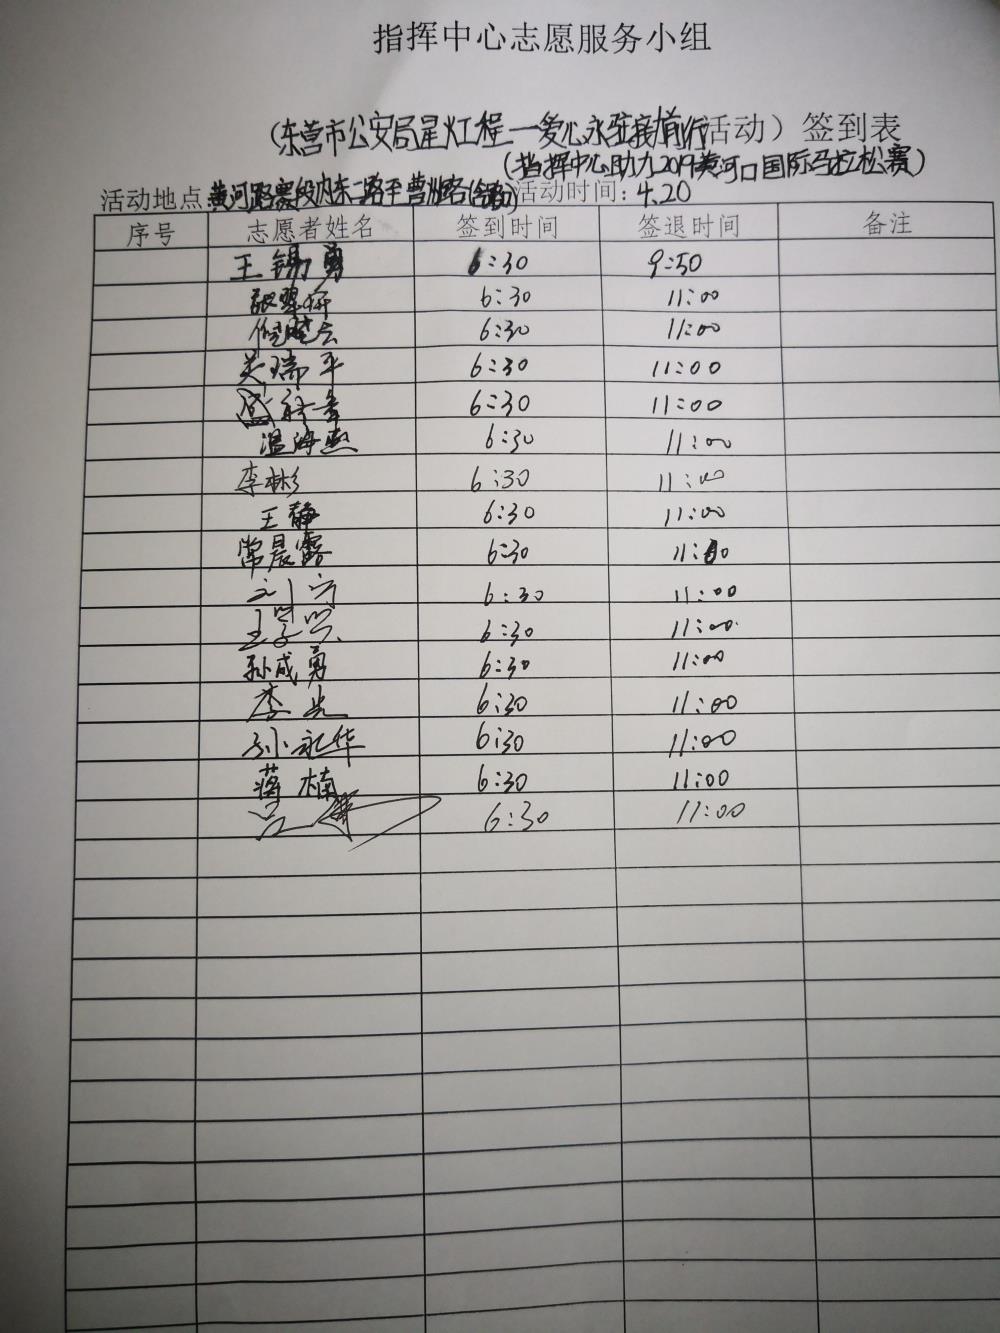 指挥中心志愿服务小组
(东营市公安局星火工程——爱心永驻 前行活动）签到表
(指挥中心助力2019黄河口国际马拉松赛)
活动地点 黄河路赛段内东二路至曹州路 活动时间：4.20
序号 志愿者姓名 签到时间 签退时间 备注
王锡勇 6:30 9:50
6:30 11:00
6:30 11:00
吴瑞平 6:30 11:00
6:30 11:00
温海燕 6:30 11:00
李彬 6:30 11:00
王静 6:30 11:00
常晨露 6:30 11:00
刘宁 6:30 11:00
王学兴 6:30 11:00
孙成勇 6:30 11:00
李 6:30 11:00
孙永华 6:30 11:00
蒋楠 6:30 11:00
6:30 11:00